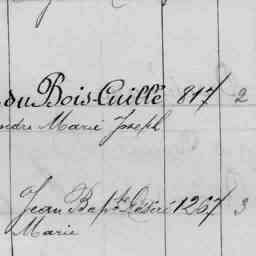 du Bois-Cuillé 817 2
ndre Marie Joseph
Jean Bapte Désiré 1267 3
Marie